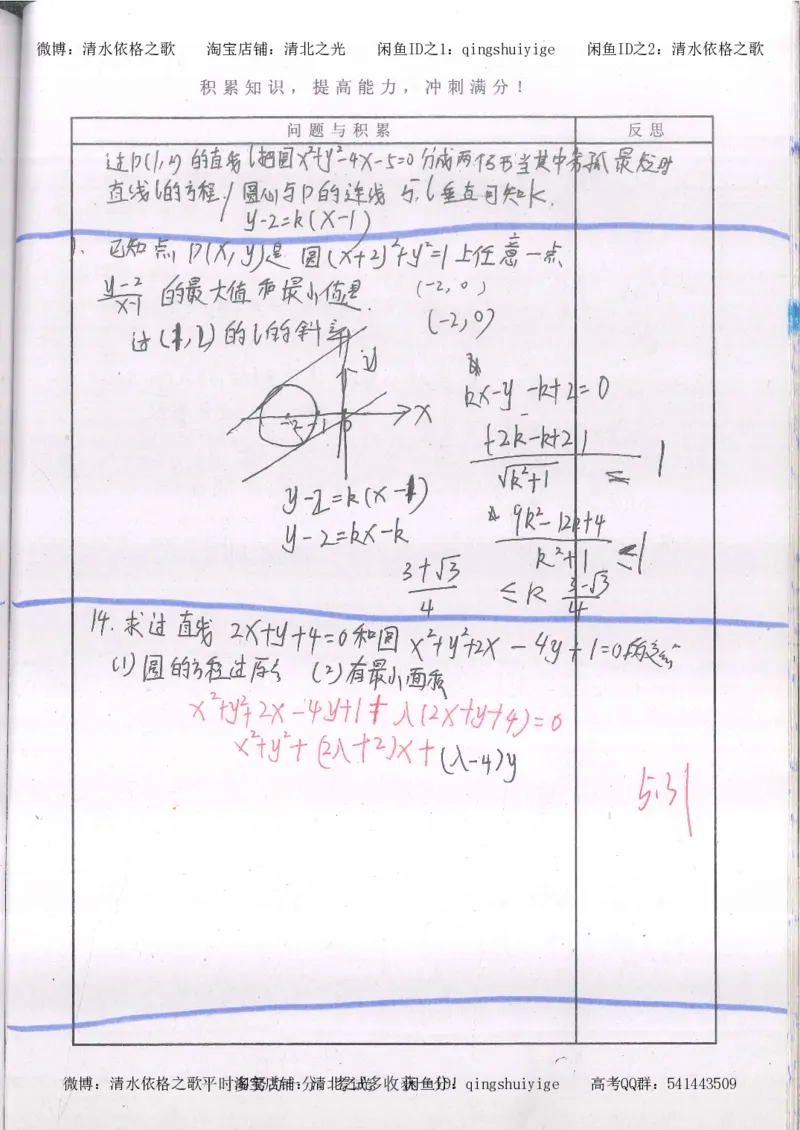 微博：清水依格之歌 淘宝店铺：清北之光 闲鱼ID之1：qingshuiyige 闲鱼ID之2：清水依格之歌
积累知识，提高能力，冲刺满分！
问题与积累 反思
过P(1,2)的直线l把圆x²+y²-4x-5=0分成两个弓形当其中劣弧最短时
直线l的方程 圆心与P的连线与l垂直可知k.
y-2=k(x-1)
1. 已知点P(x,y)是圆(x+2)²+y²=1上任意一点
y-2/x-1 的最大值和最小值是. (-2,0)
(-2,0)
过(1,2)的l的斜率
y
kx-y-k+2=0
-2 -1 0 x
|-2k-k+2|/√k²+1 ≤ 1
y-2=k(x-1)
9k²-12k+4/k²+1 ≤1
y-2=kx-k
3+√3/4 ≤k 3-√3/4
14. 求过直线2x+y+4=0和圆x²+y²+2x-4y+1=0的交点
(1)圆的方程过原点 (2)有最小面积
x²+y²+2x-4y+1+λ(2x+y+4)=0
x²+y²+(2λ+2)x+(λ-4)y
5.31
微博：清水依格之歌 淘宝店铺：清北之光 闲鱼ID：qingshuiyige 高考QQ群：541443509